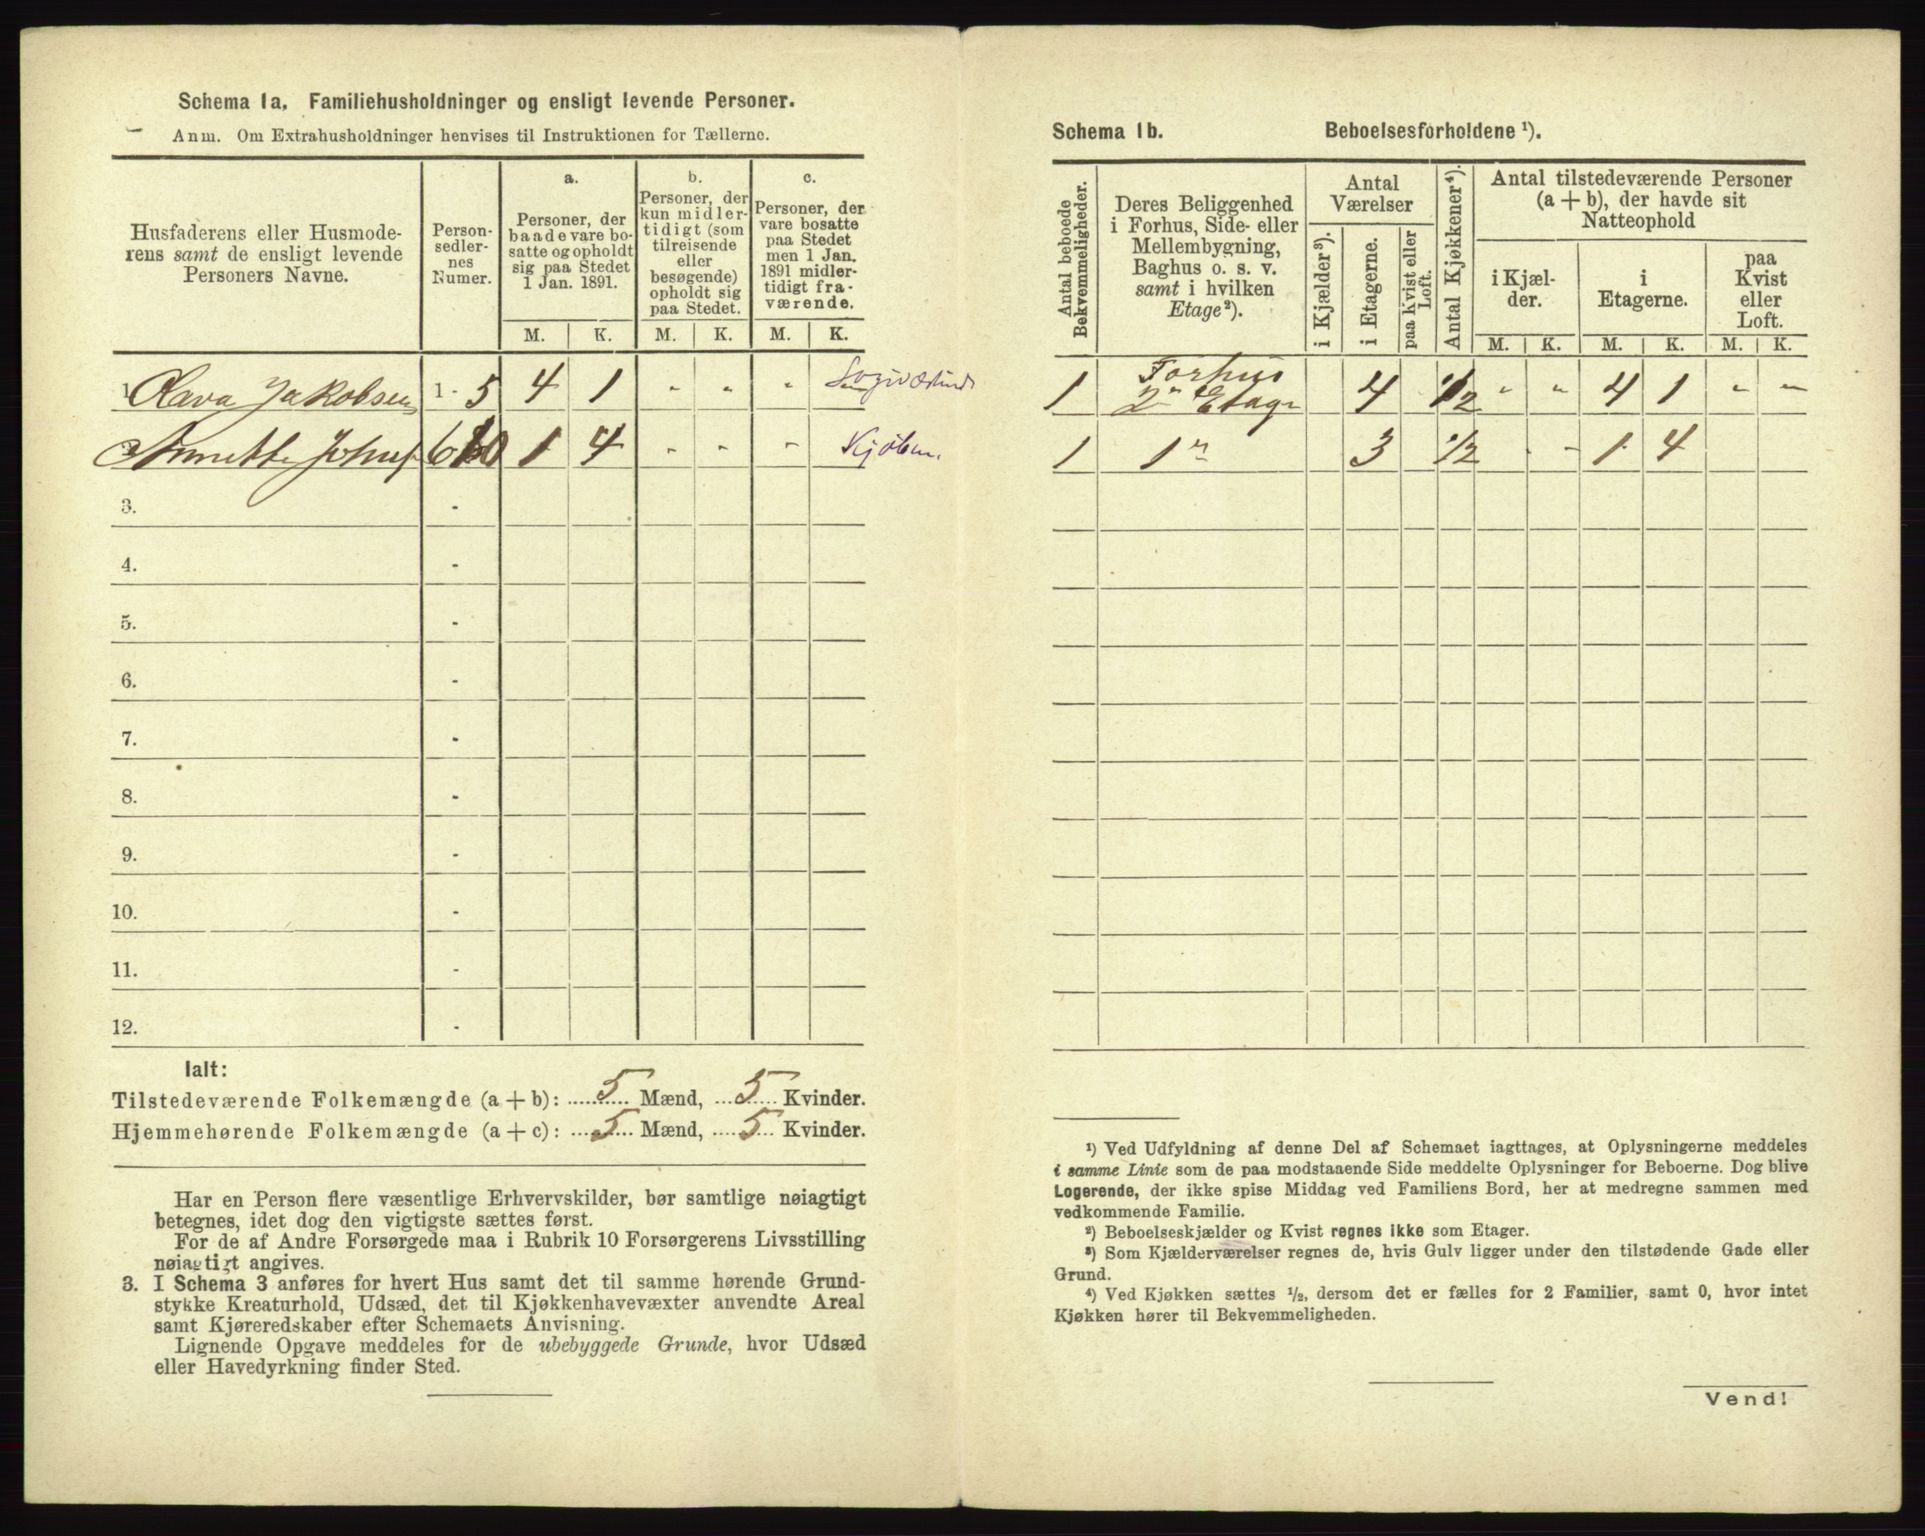 Schema 1a. Familiehusholdninger og ensligt levende Personer.
Anm. Om Extrahusholdninger henvises til Instruktionen for Tællerne.
Husfaderens eller Husmoderens samt de ensligt levende Personers Navne.
Person-sedler-nes Numer.
a.
Personer, der baade vare bosatte og opholdt sig paa Stedet 1 Jan. 1891.
b.
Personer, der kun midlertidigt (som tilreisende eller besøgende) opholdt sig paa Stedet.
c.
Personer, der vare bosatte paa Stedet men 1 Jan. 1891 midlertidigt fraværende.
M. K. M. K. M. K.
1. Jakobsen 1 - 5 4 1 " " "
Annette 6 10 1 4 " " " Kjøbm.
3. -
4. -
5. -
6. -
7. -
8. -
9. -
10. -
11. -
12. -
Ialt:
Tilstedeværende Folkemængde (a + b): 5 Mænd, 5 Kvinder.
Hjemmehørende Folkemængde (a + c): 5 Mænd, 5 Kvinder.
Har en Person flere væsentlige Erhvervskilder, bør samtlige nøiagtigt
betegnes, idet dog den vigtigste sættes først.
For de af Andre Forsørgede maa i Rubrik 10 Forsørgerens Livsstilling
nøiagtigt angives.
3. I Schema 3 anføres for hvert Hus samt det til samme hørende Grund-
stykke Kreaturhold, Udsæd, det til Kjøkkenhavevæxter anvendte Areal
samt Kjøreredskaber efter Schemaets Anvisning.
Lignende Opgave meddeles for de ubebyggede Grunde, hvor Udsæd
eller Havedyrkning finder Sted.
Schema 1b. Beboelsesforholdene ¹).
Antal beboede Bekvemmeligheder.
Deres Beliggenhed i Forhus, Side- eller Mellembygning, Baghus o. s. v. samt i hvilken Etage ²).
Antal Værelser
i Kjælder ³).
i Etagerne.
paa Kvist eller Loft.
Antal Kjøkkener ⁴).
Antal tilstedeværende Personer (a + b), der havde sit Natteophold
i Kjælder.
i Etagerne.
paa Kvist eller Loft.
M. K. M. K. M. K.
1 Forhus 2n Etage 4 1/2 " " 4 1 " "
1 1n 3 1/2 - - 1 4
¹) Ved Udfyldning af denne Del af Schemaet iagttages, at Oplysningerne meddeles
i samme Linie som de paa modstaaende Side meddelte Oplysninger for Beboerne. Dog blive
Logerende, der ikke spise Middag ved Familiens Bord, her at medregne sammen med
vedkommende Familie.
²) Beboelseskjælder og Kvist regnes ikke som Etager.
³) Som Kjælderværelser regnes de, hvis Gulv ligger under den tilstødende Gade eller
Grund.
⁴) Ved Kjøkken sættes ½, dersom det er fælles for 2 Familier, samt 0, hvor intet
Kjøkken hører til Bekvemmeligheden.
Vend!